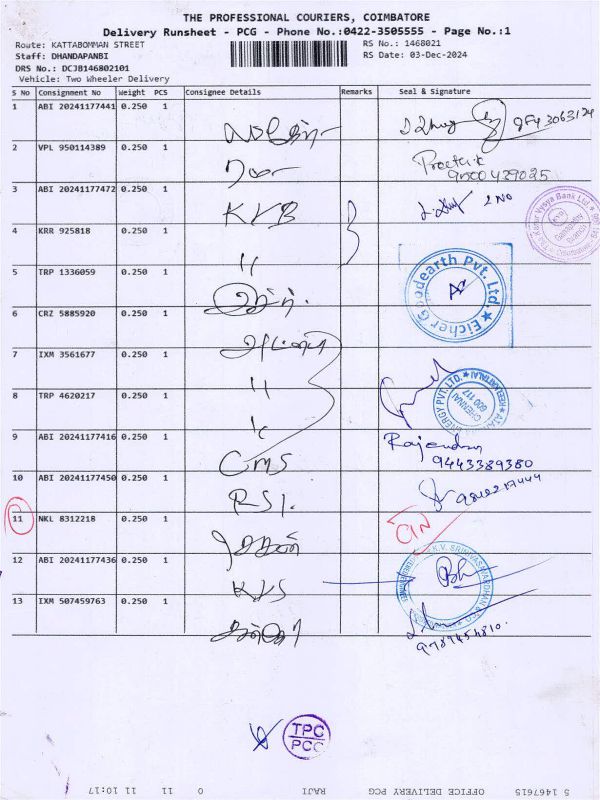 THE PROFESSIONAL COURIERS, COIMBATORE
Delivery Runsheet - PCG - Phone No.:0422-3505555 - Page No.:1
Route: KATTABOMMAN STREET
RS No.: 1468021
Staff: DHANDAPANBI
RS Date: 03-Dec-2024
DRS No.: DCJB146802101
Vehicle: Two Wheeler Delivery
S No Consignment No Weight PCS Consignee Details Remarks Seal & Signature
1 ABI 20241177441 0.250 1
2 VPL 950114389 0.250 1
9500439025
3 ABI 20241177472 0.250 1 KVB 2 NO
4 KRR 925818 0.250 1 "
5 TRP 1336059 0.250 1
Eicher Goodearth Pvt. Ltd.
6 CRZ 5885920 0.250 1
7 IXM 3561677 0.250 1
"
8 TRP 4620217 0.250 1
ENERGY PVT. LTD.
CHENNAI
600 117
9 ABI 20241177416 0.250 1 CMS
Rajendran
9443389380
10 ABI 20241177450 0.250 1 RSI.
11 NKL 8312218 0.250 1
12 ABI 20241177436 0.250 1 KVS
13 IXM 507459763 0.250 1
TPC
PCG
S 1467615 OFFICE DELIVERY PCG RAJI 0 11 11 10:17